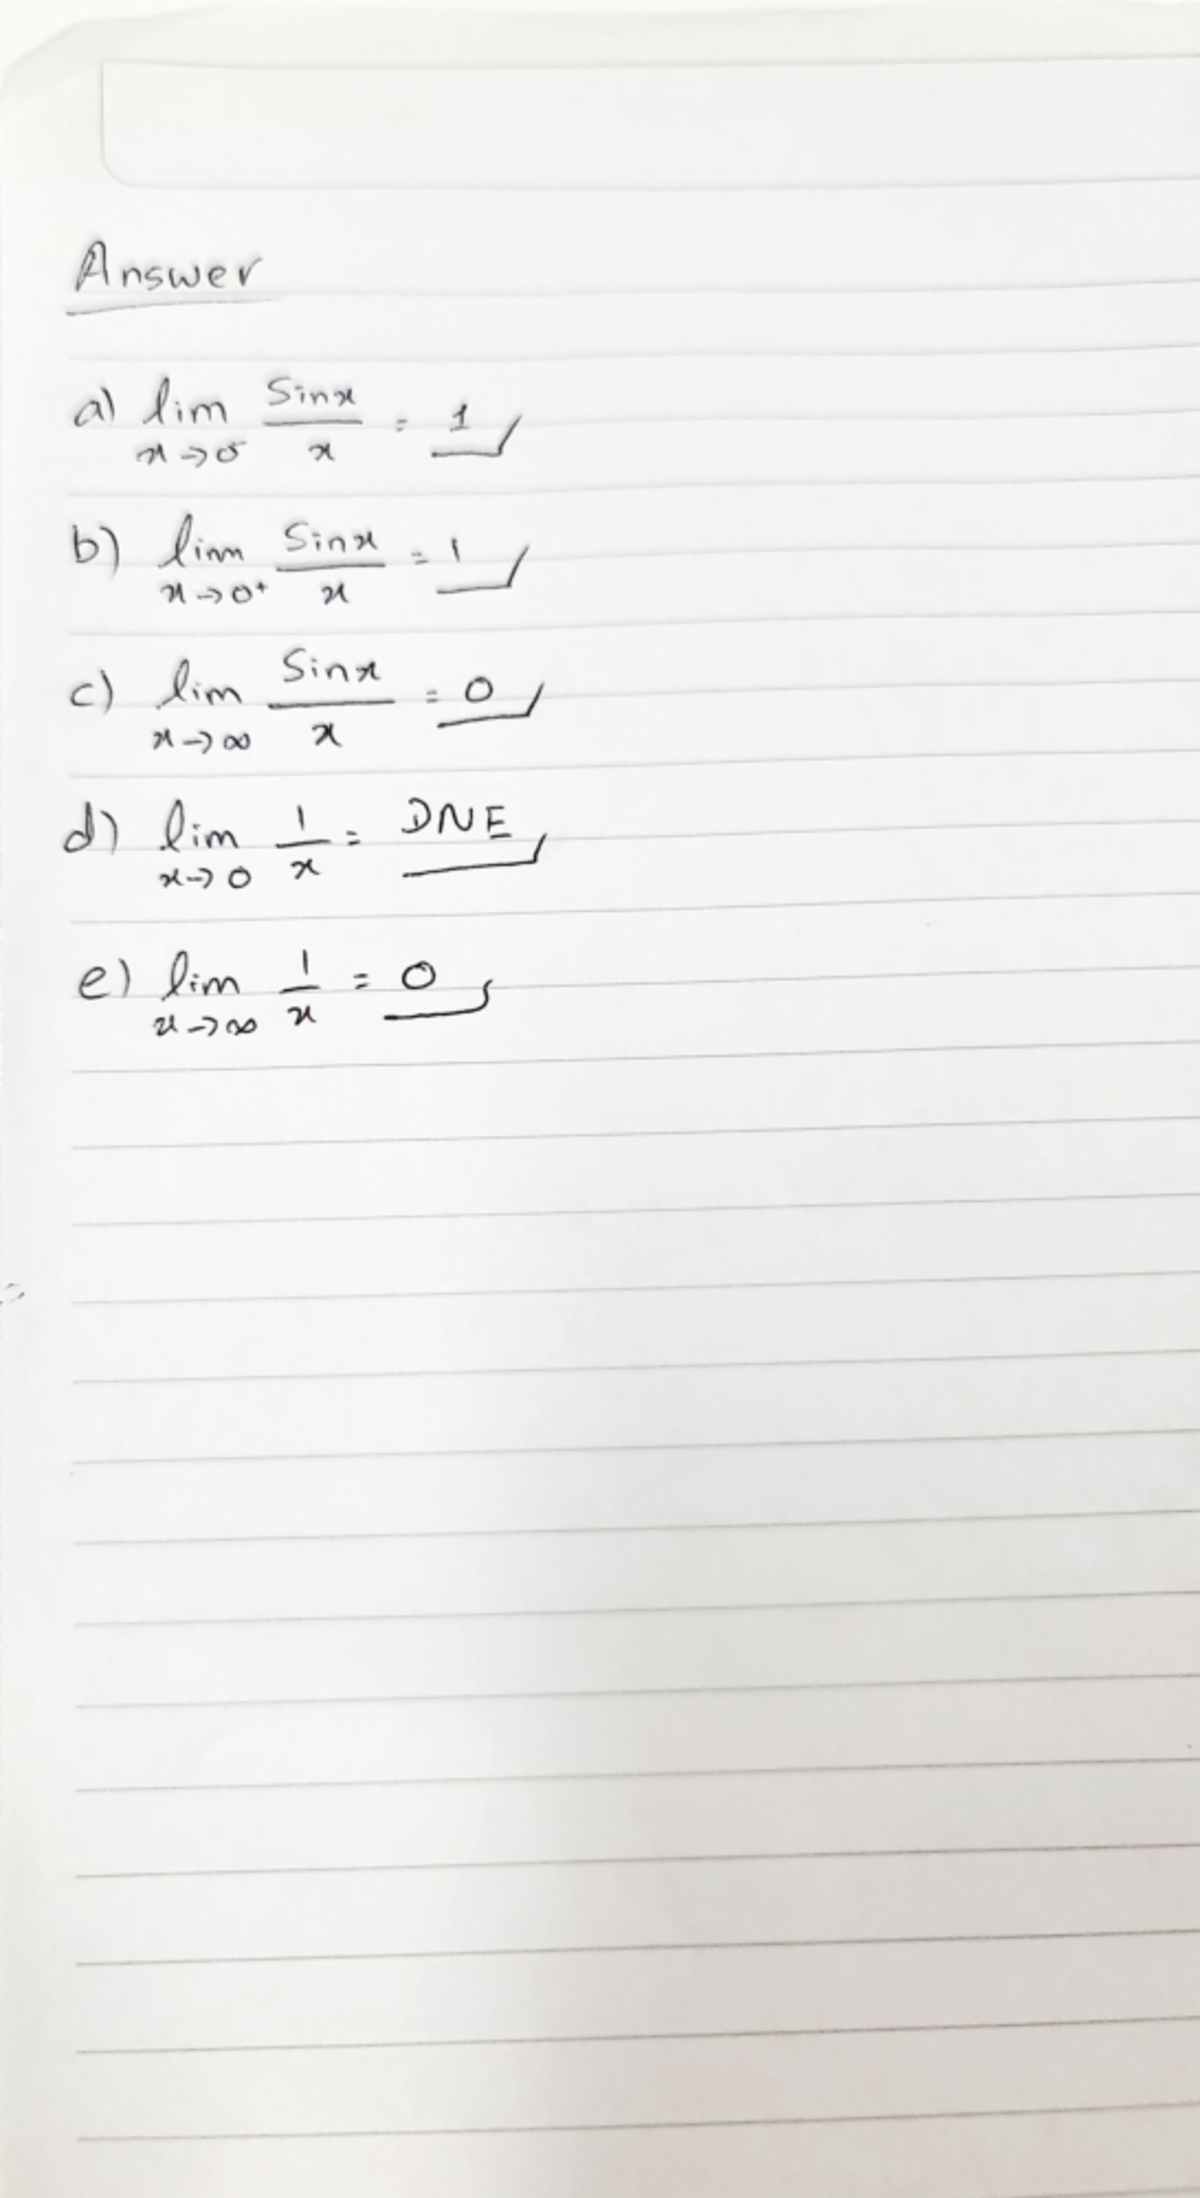 Answer
a) lim x→0⁻ sinx/x = 1
b) lim x→0⁺ sinx/x = 1
c) lim x→∞ sinx/x = 0
d) lim x→0 1/x = DNE
e) lim x→∞ 1/x = 0